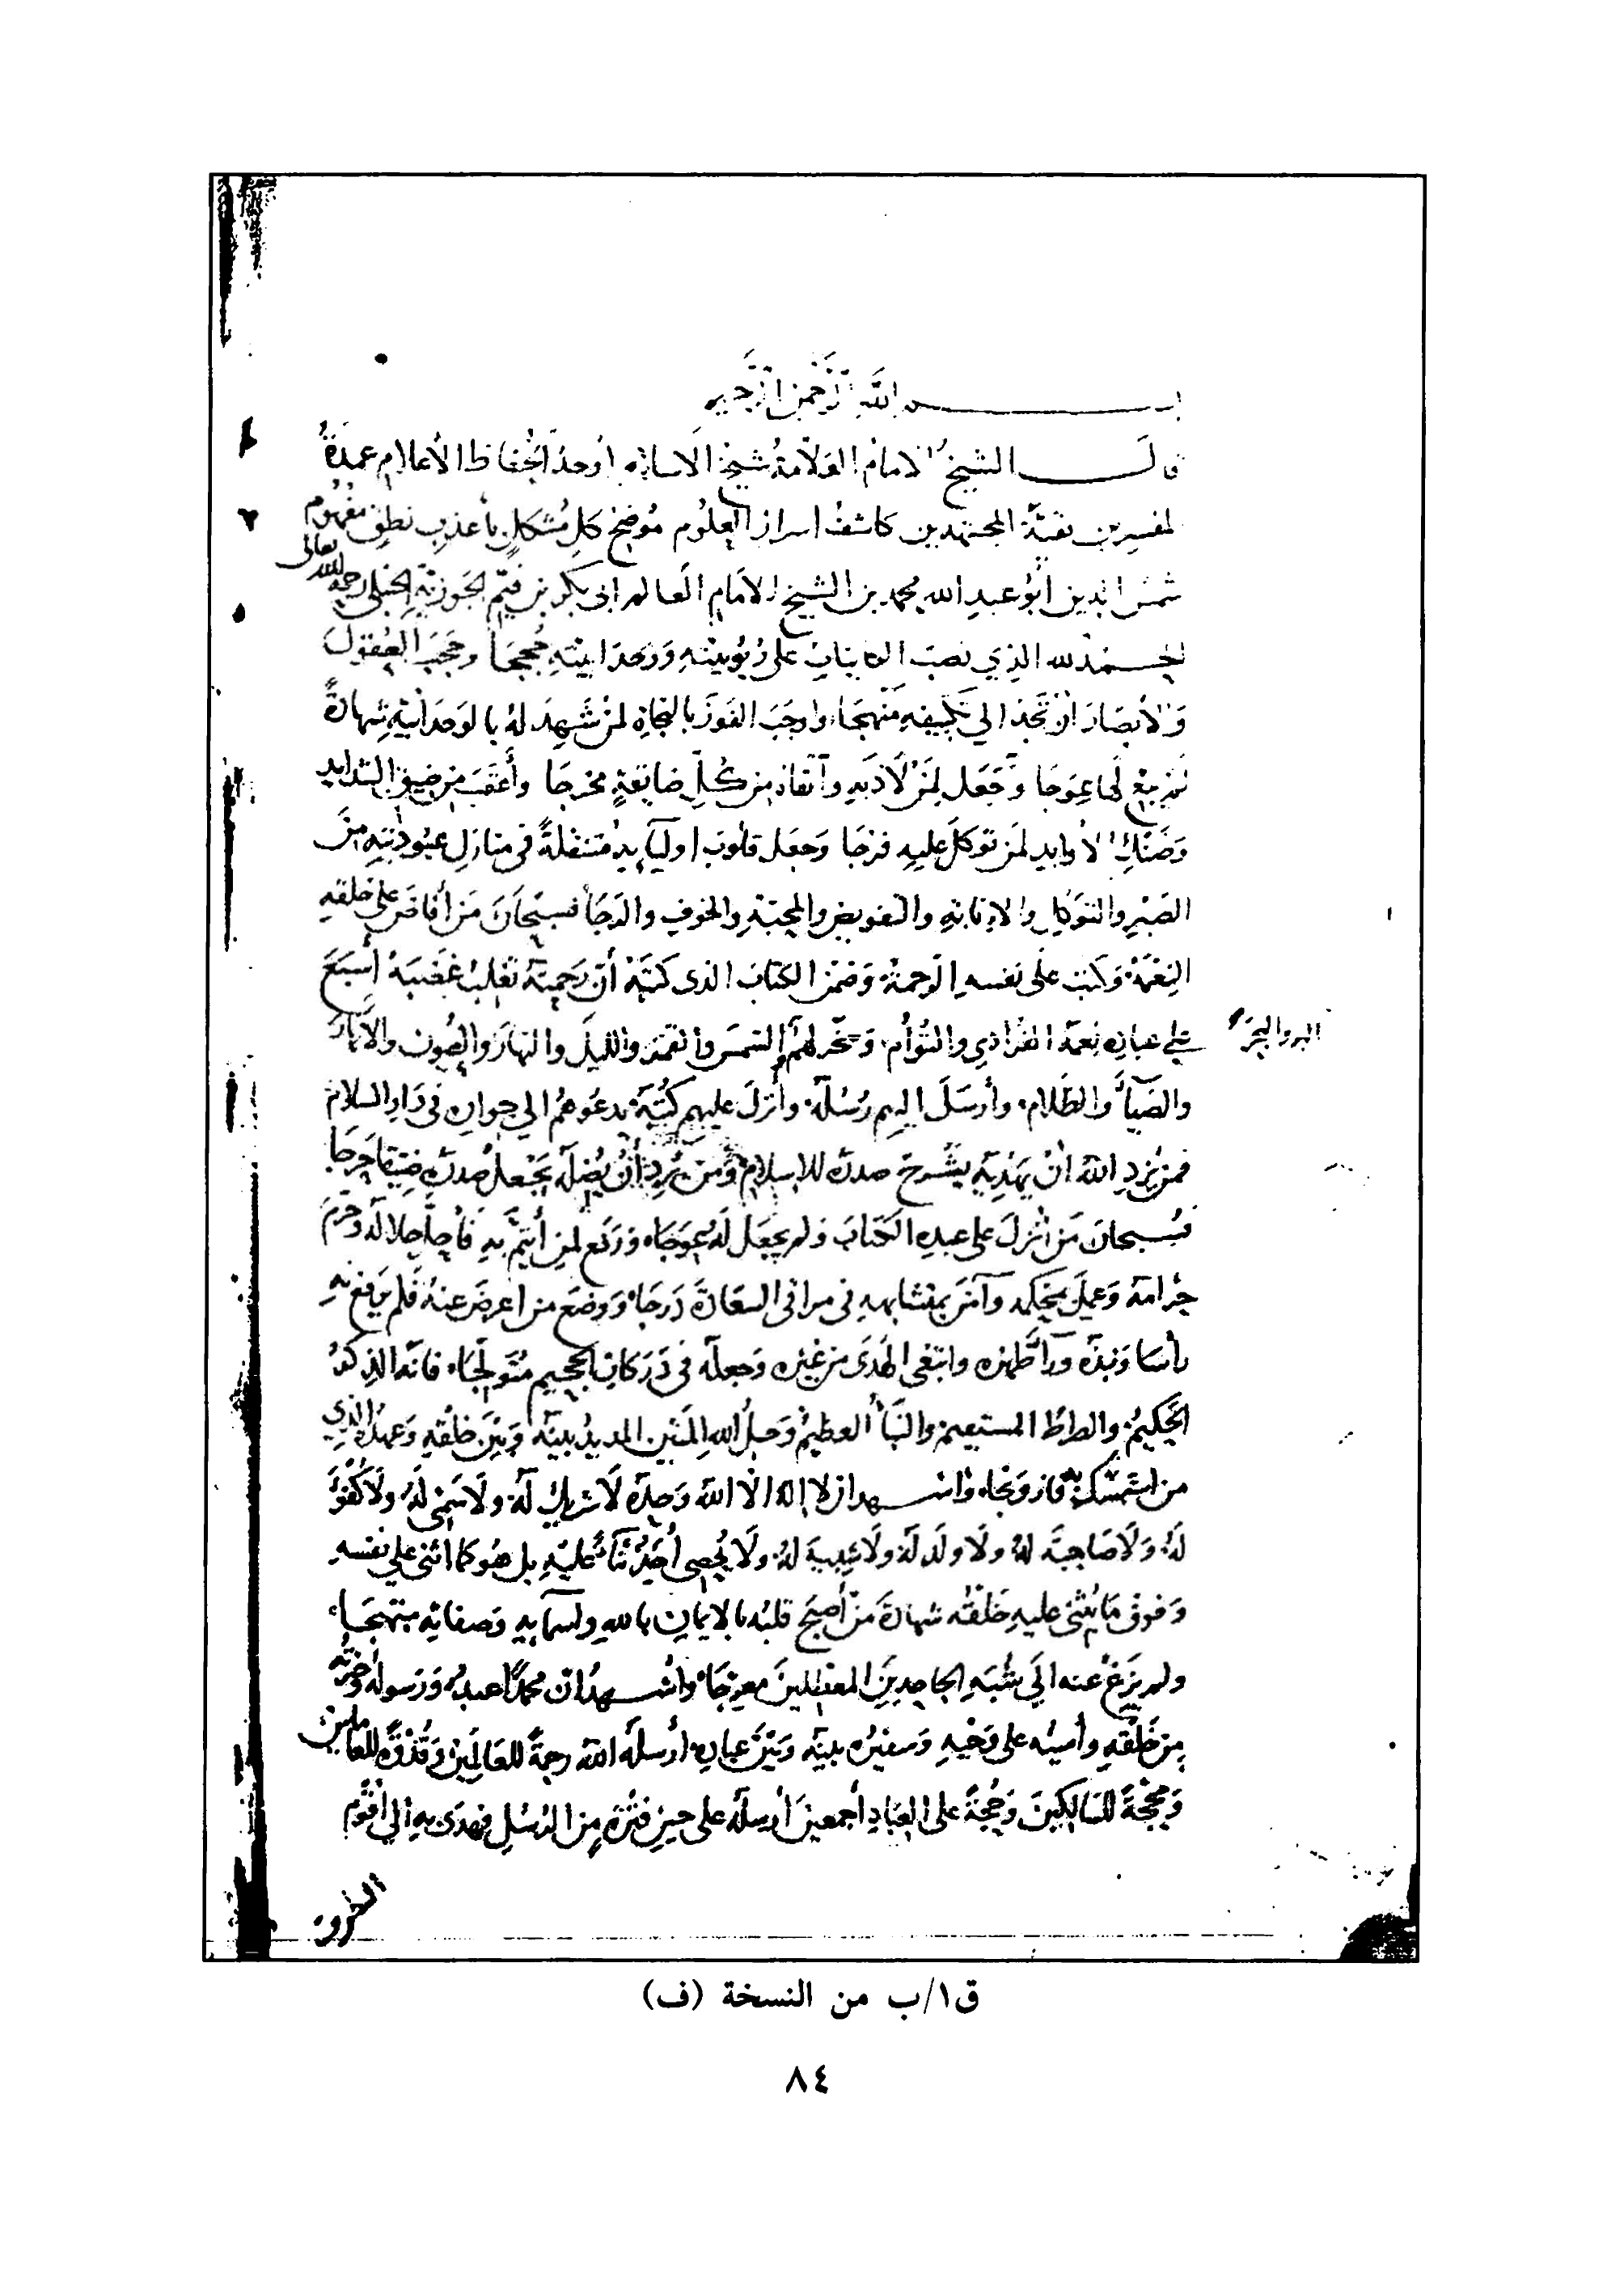 بسم الله الرحمن الرحيم
قال الشيخ الامام العلامة شيخ الاسلام اوحد الحفاظ الأعلام عمدة
المفسرين بقية المجتهدين كاشف اسرار العلوم موضح كل مشكل بأعذب نطق مفهوم
شمس الدين أبو عبد الله محمد بن الشيخ الامام العالم ابى بكر بن قيم الجوزية الحنبلى رحمه الله تعالى
الحمد لله الذي نصب الكاينات على ربوبيته ووحدانيته حججا وحجب العقول
والأبصار ان تجد الي تكييفه منهجا وأوجب الفوز بالنجاة لمن شهد له بالوحدانية شهادة
لم يبغ لها عوجا وجعل لمن لاذ به واتقاه من كل ضايقة مخرجا وأعقب من ضيق الشدايد
وضنك الاوابد لمن توكل عليه فرجا وجعل قلوب اوليآيه متنقلة في منازل عبوديته من
الصبر والتوكل والانابة والتفويض والمحبة والخوف والرجا فسبحان من أفاض على خلقه
النعمة وكتب على نفسه الرحمة وضمن الكتاب الذى كتبه أن رحمته تغلب غضبه أسبغ
على عباده نعمه الفرادي والتوأم وسخر لهم الشمس والقمر والليل والنهار والعيون والأنهار
البر والبحر
والضيآ والظلام وأرسل اليهم رسله وأنزل عليهم كتبه يدعوهم الي جواره في دار السلام
فمن يرد الله ان يهديه يشرح صدره للاسلام ومن يرد أن يضله يجعل صدره ضيقا حرجا
فسبحان من أنزل على عبده الكتاب ولم يجعل له عوجا ورفع لمن أتم به فأحل حلاله وحرم
حرامه وعمل بمحكمه وآمن بمتشابهه في مراقى السعادة درجا ووضع من اعرض عنه فلم يرفع به
رأسا ونبذه ورآ ظهره وابتغى الهدى من غيره وجعله في دركات الجحيم متولجا فانه الذكر
الحكيم والصراط المستقيم والنبأ العظيم وحبل الله المتين المديد بينه وبين خلقه وعهده الذي
من استمسك به فاز ونجا واشهد ان لا إله الا الله وحده لا شريك له ولا سمى له ولا كفؤ
له ولا صاحبة له ولا ولد له ولا شبيه له ولا يحصى أحد ثنآء عليه بل هو كما اثنى علي نفسه
وفوق ما يثنى عليه خلقه شهادة من أصبح قلبه بالايمان بالله واسمآيه وصفاته مبتهجا
ولم يزغ عنه الي شبه الجاحدين المعطلين معرجا وأشهد ان محمدا عبده ورسوله وخيرته
من خلقه وأمينه على وحيه وسفيره بينه وبين عباده أرسله الله رحمة للعالمين وقدوة للعاملين
ومحجة للسالكين وحجة على العباد أجمعين أرسله على حين فترة من الرسل فهدى به الي أقوم
ق١/ب من النسخة (ف)
٨٤